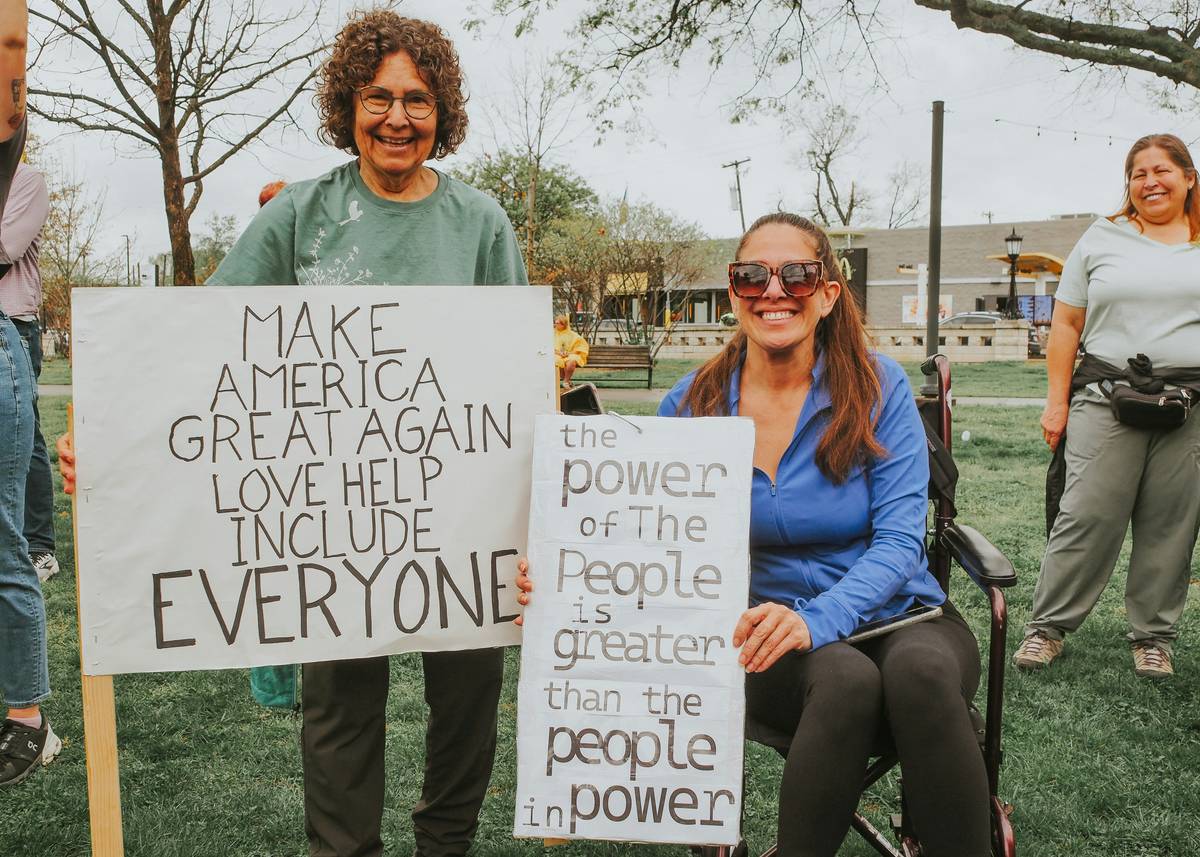 MAKE
AMERICA
GREAT AGAIN
LOVE HELP
INCLUDE
EVERYONE
the
power
of The
People
is
greater
than the
people
in power